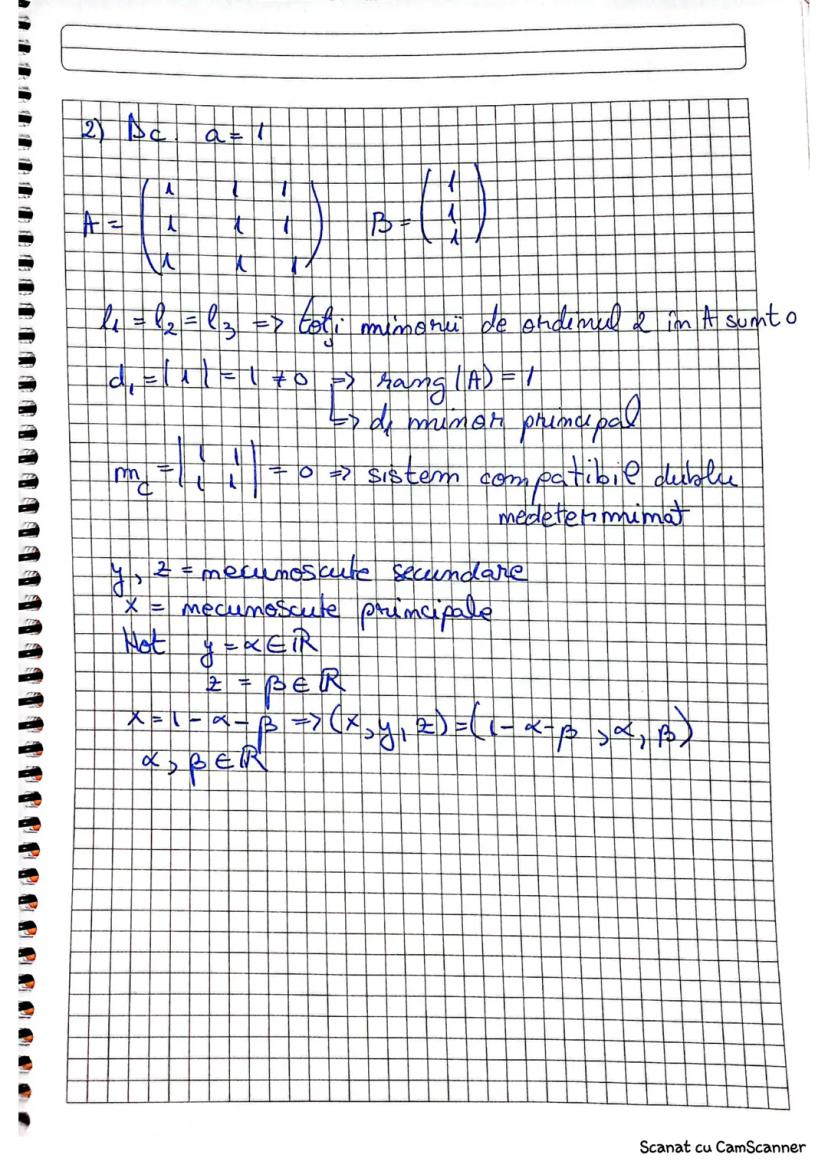 2) Dc. a = 1
A = ( 1 1 1 1 1 1 1 1 1 ) B = ( 1 1 1 )
l₁ = l₂ = l₃ => toți minorii de ordinul 2 în A sunt 0
d₁ = |1| = 1 ≠ 0 => rang(A) = 1
↳> d₁ minor principal
m_c = | 1 1 1 1 | = 0 => sistem compatibil dublu
nedeterminat
y, z = necunoscute secundare
x = necunoscute principale
Not y = α ∈ ℝ
z = β ∈ ℝ
x = 1 - α - β => (x, y, z) = (1 - α - β, α, β)
α, β ∈ ℝ
Scanat cu CamScanner